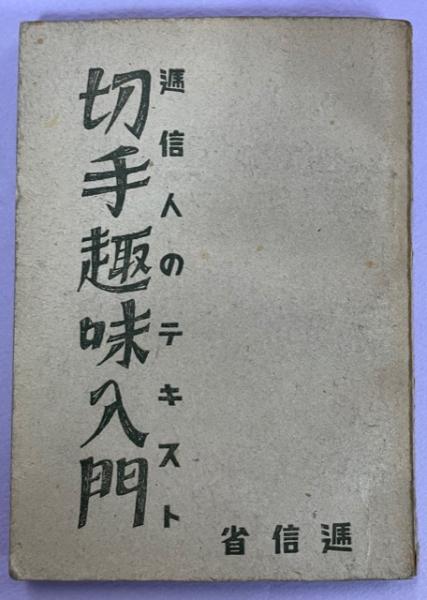 逓信人のテキスト
切手趣味入門
省信遞